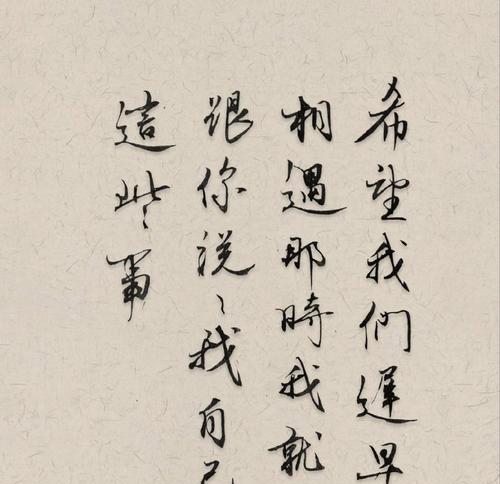 希望我們遲早
相遇那時我就
跟你說說我自己
這些事